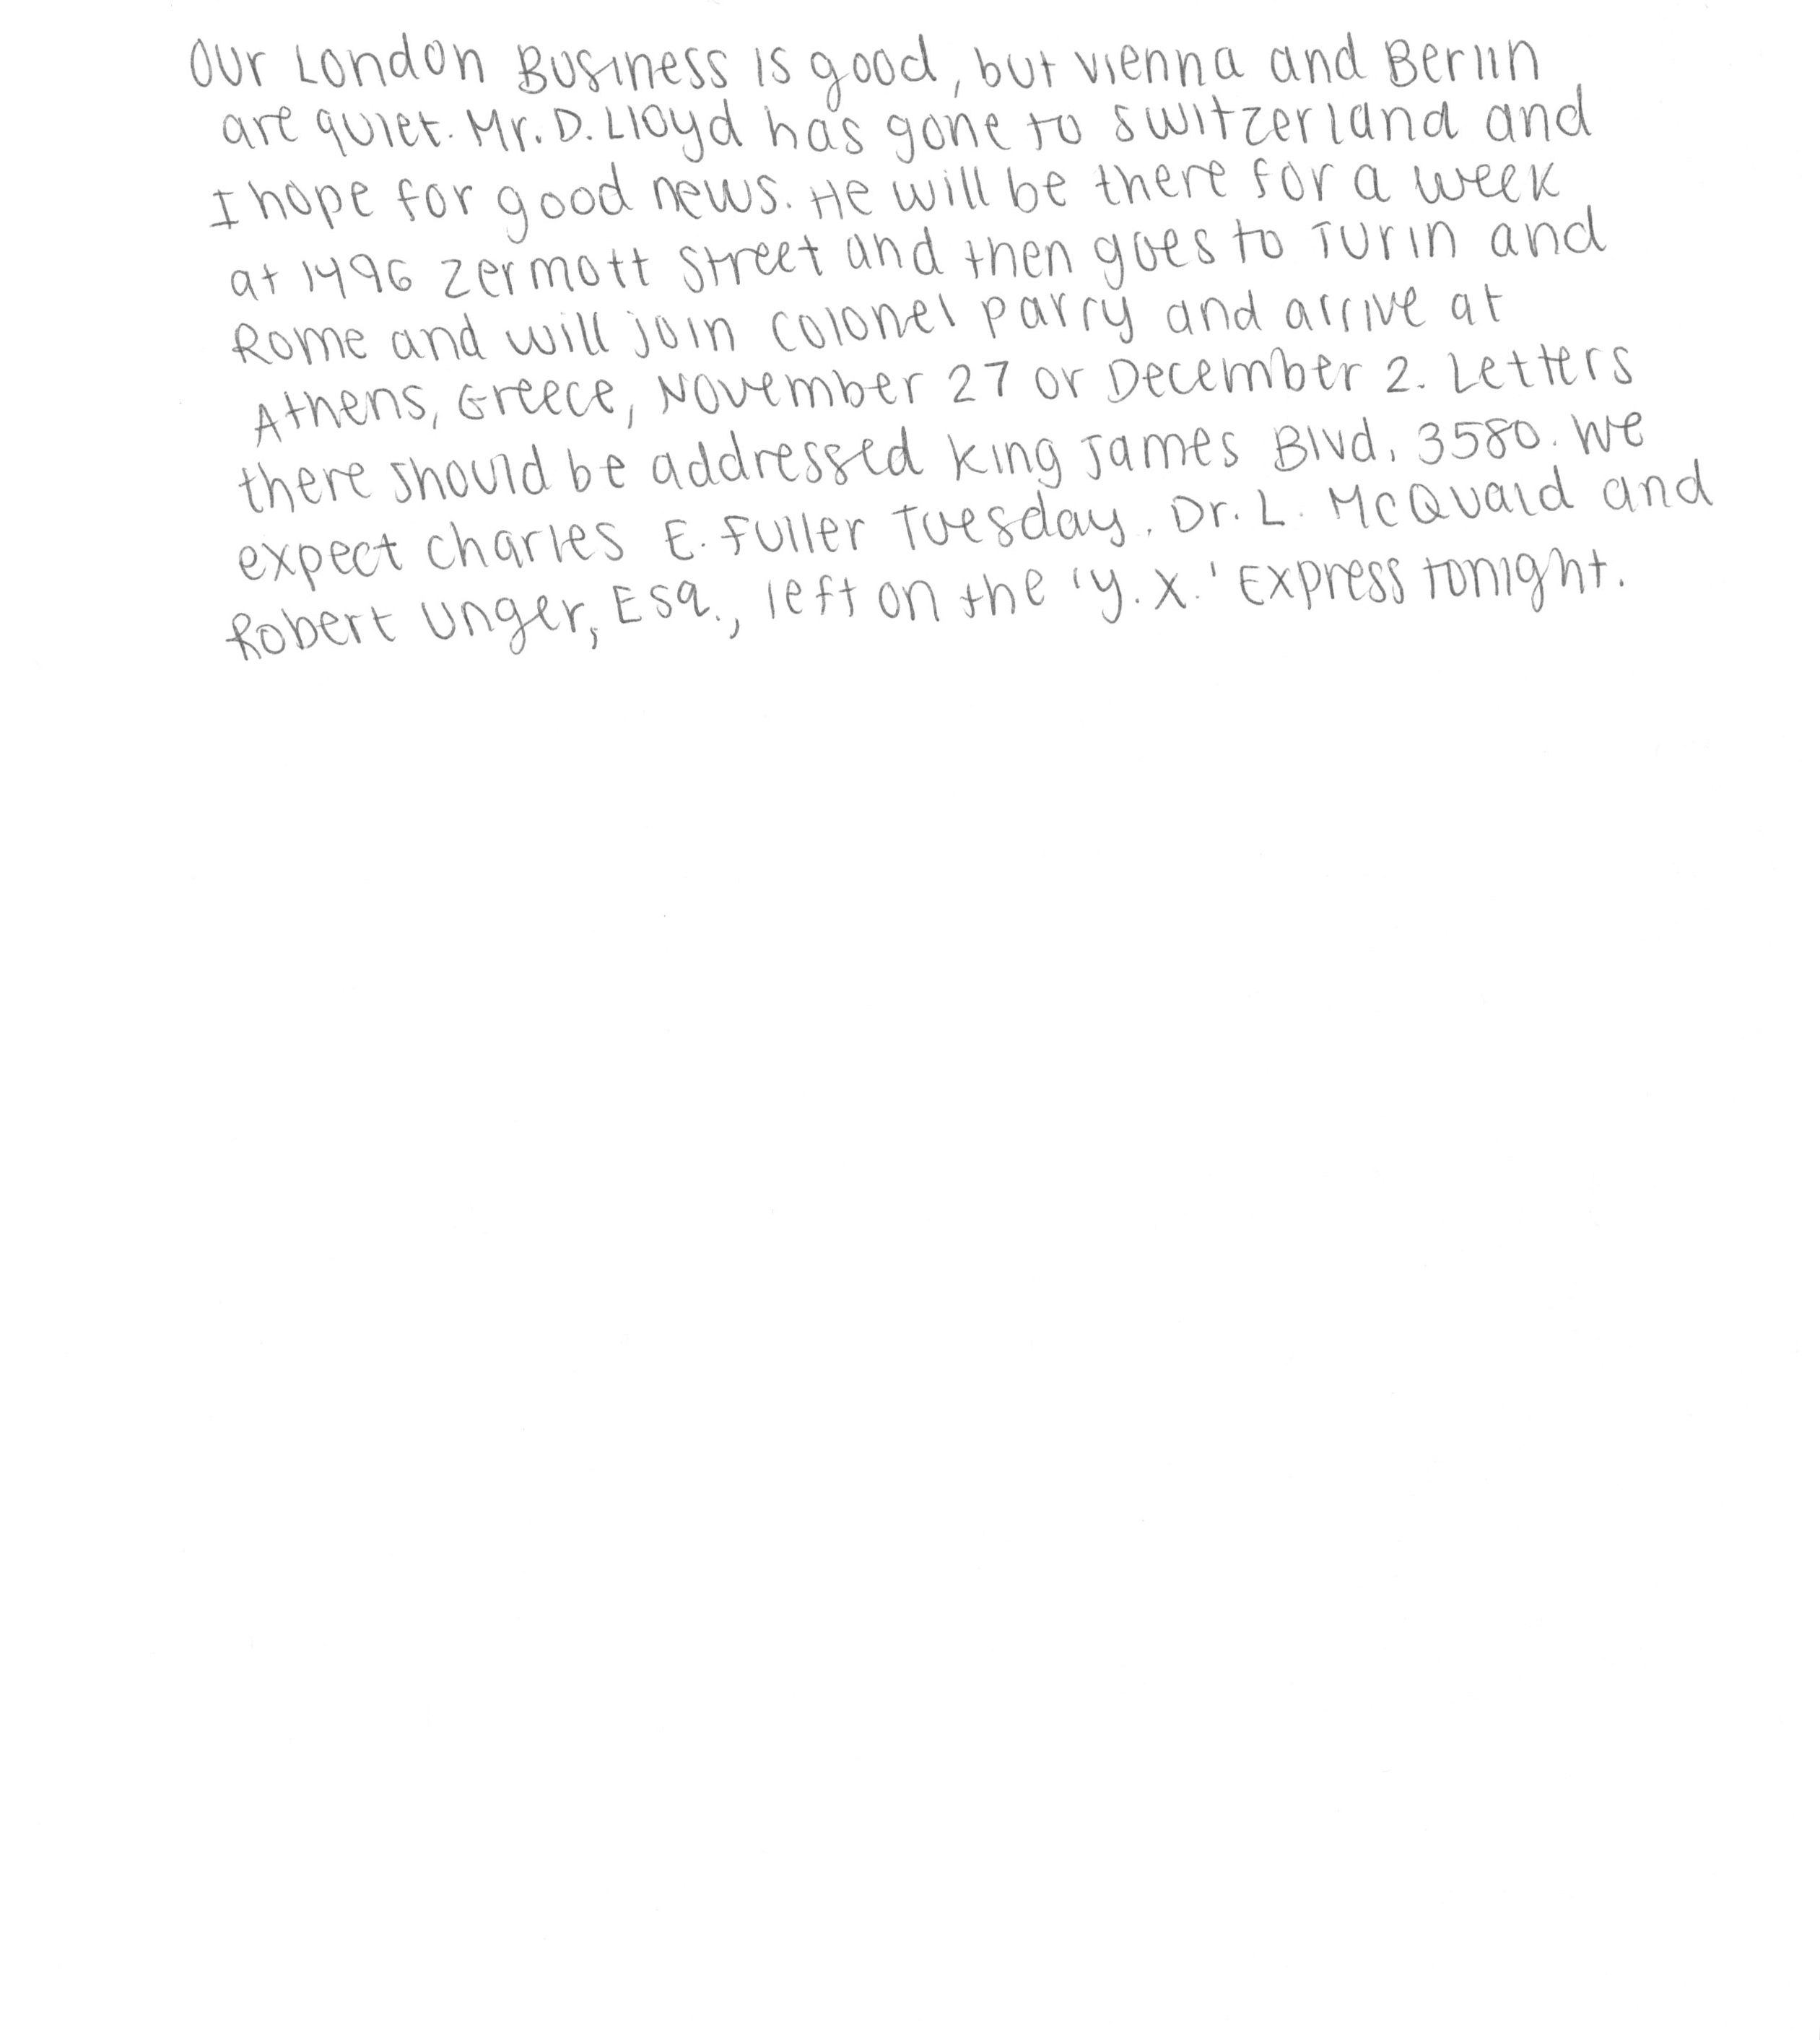 Our London Business is good, but vienna and Berlin
are quiet. Mr. D. Lloyd has gone to switzerland and
I hope for good news. He will be there for a week
at 1496 Zermott street and then goes to Turin and
Rome and will join colonel parry and arrive at
Athens, Greece, November 27 or December 2. Letters
there should be addressed king James Blvd. 3580. We
expect charles E. Fuller Tuesday. Dr. L. McQuaid and
Robert Unger, Esq., left on the 'y.x.' Express tonight.